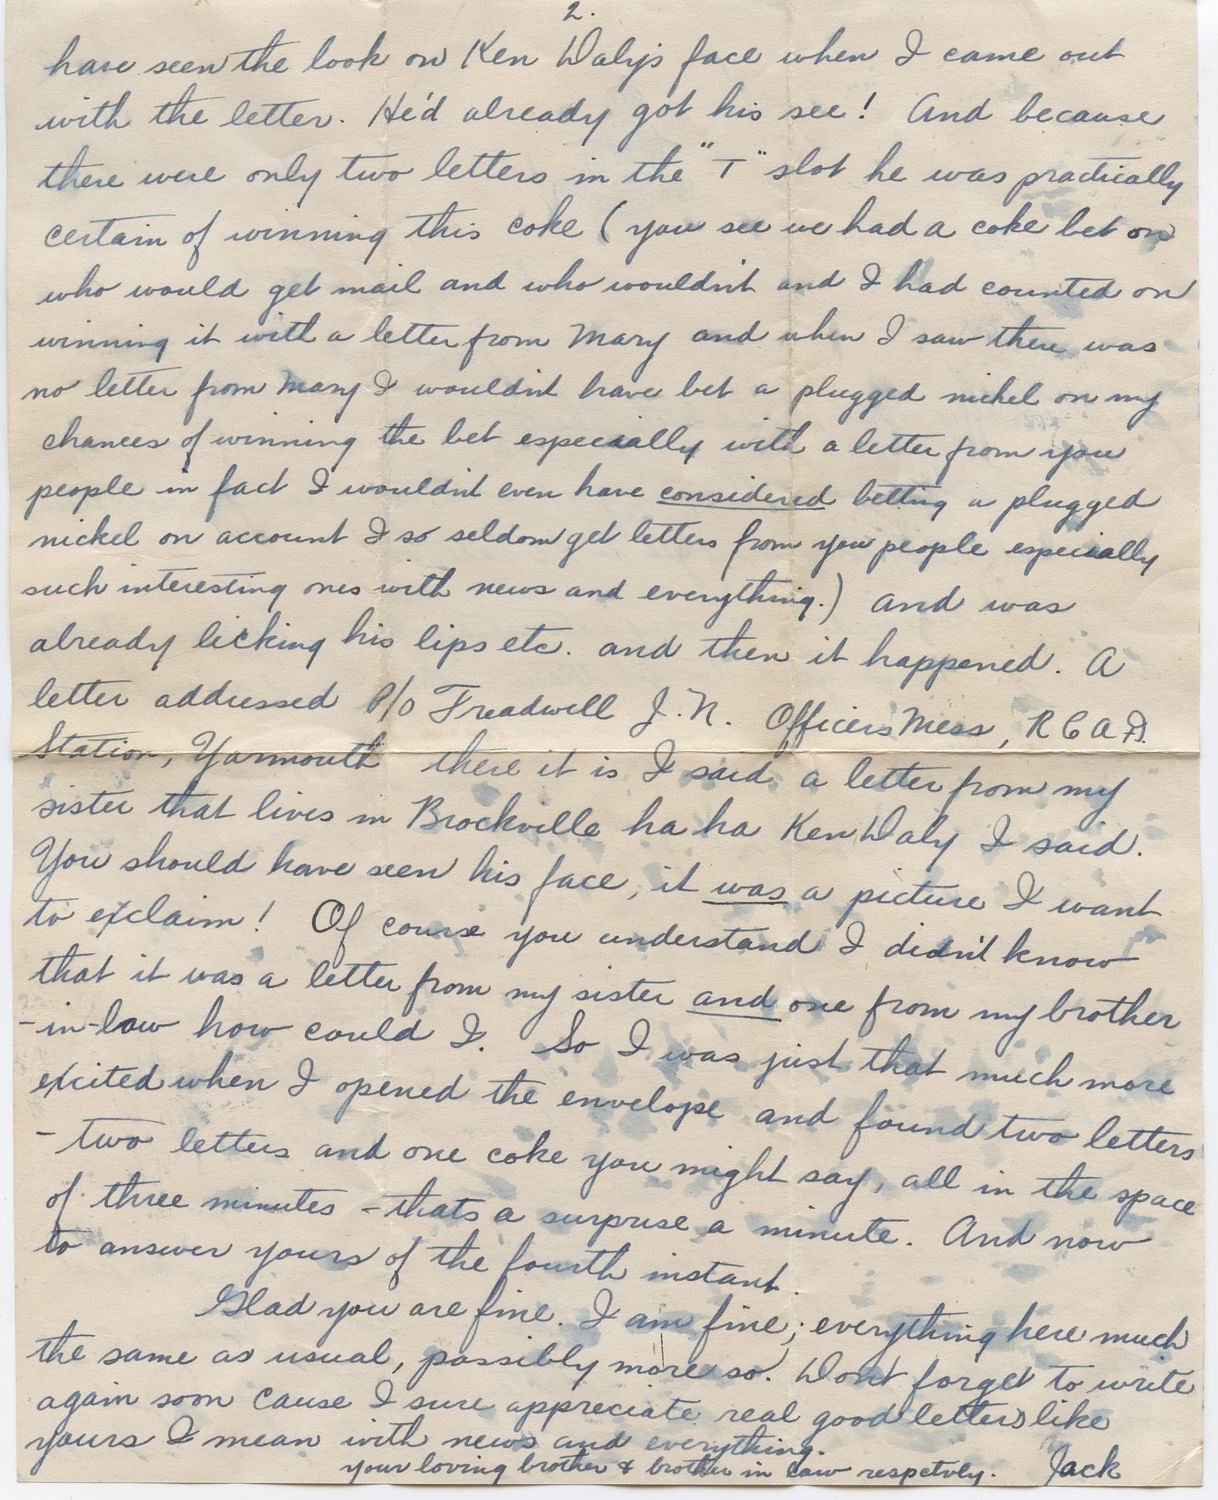 2.
have seen the look on Ken Daly's face when I came out
with the letter. He'd already got his see! And because
there were only two letters in the "T" slot he was practically
certain of winning this coke (you see we had a coke bet on
who would get mail and who wouldn't and I had counted on
winning it with a letter from Mary and when I saw there was
no letter from Mary I wouldn't have bet a plugged nickel on my
chances of winning the bet especially with a letter from you
people in fact I wouldn't even have considered betting a plugged
nickel on account I so seldom get letters from you people especially
such interesting ones with news and everything.) and was
already licking his lips etc. and then it happened. A
letter addressed P/O Treadwell J.N. Officers Mess, R C A F.
Station, Yarmouth there it is I said a letter from my
sister that lives in Brockville ha ha Ken Daly I said.
You should have seen his face, it was a picture I want
to exclaim! Of course you understand I didn't know
that it was a letter from my sister and one from my brother
-in-law how could I. So I was just that much more
excited when I opened the envelope and found two letters
- two letters and one coke you might say, all in the space
of three minutes - thats a surprise a minute. And now
to answer yours of the fourth instant.
Glad you are fine. I am fine; everything here much
the same as usual, possibly more so. Dont forget to write
again soon cause I sure appreciate real good letters like
yours I mean with news and everything.
your loving brother & brother in law respetvly. Jack